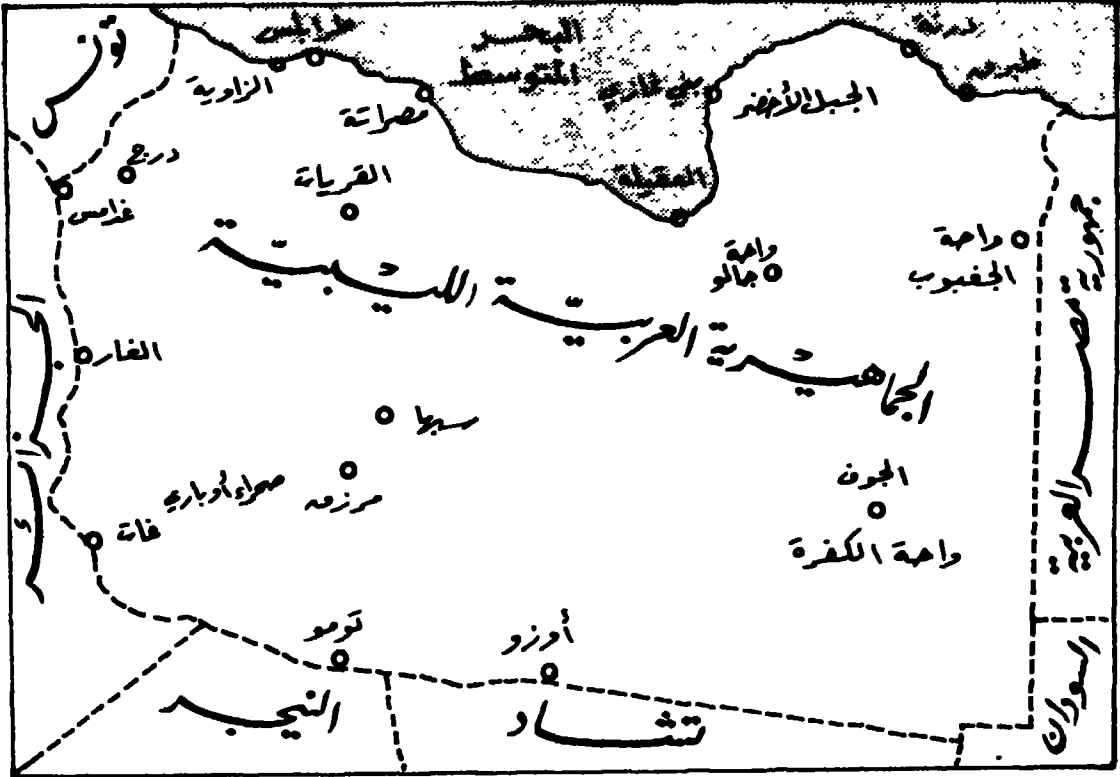 تونس
طرابلس
الزاوية
البحر
المتوسط
مصراتة
بني غازي
الجبل الأخضر
درنة
طبرق
درج
غدامس
القريات
العقيلة
واحة
جالو
واحة
الجغبوب
جمهورية مصر العربية
الجماهيرية العربية الليبية
الجزائر
الغار
سبها
مرزق
صحراء أوباري
غات
الجوف
واحة الكفرة
تومو
أوزو
النيجر
تشاد
السودان